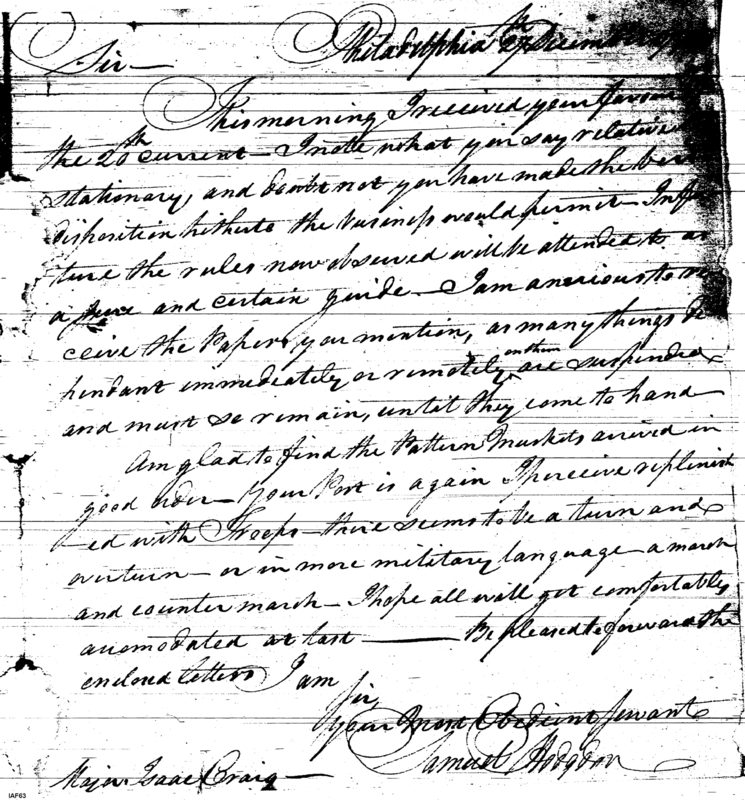 Philadelphia 27th December
Sir —
This morning I received your favour
the 20th current — I note what you say relative
stationary, and doubt not you have made the best
disposition hitherto the business would permit — In fu
ture the rules now observed will be attended to as
a sure and certain guide — I am anxious to re
ceive the Papers you mention, as many things de
pendant immediately or remotely on them are suspended
and must so remain, until they come to hand —
Am glad to find the Pattern Muskets arrived in
good order — Your Post is again I perceive replenish
-ed with Troops — there seems to be a turn and
overturn — or in more military language a march
and counter march — I hope all will get comfortably
accomodated at last —— Be pleased to forward the
enclosed letters I am
Sir,
Your Most Obedient Servant
Samuel Hodgdon
Major Isaac Craig —
IAF63